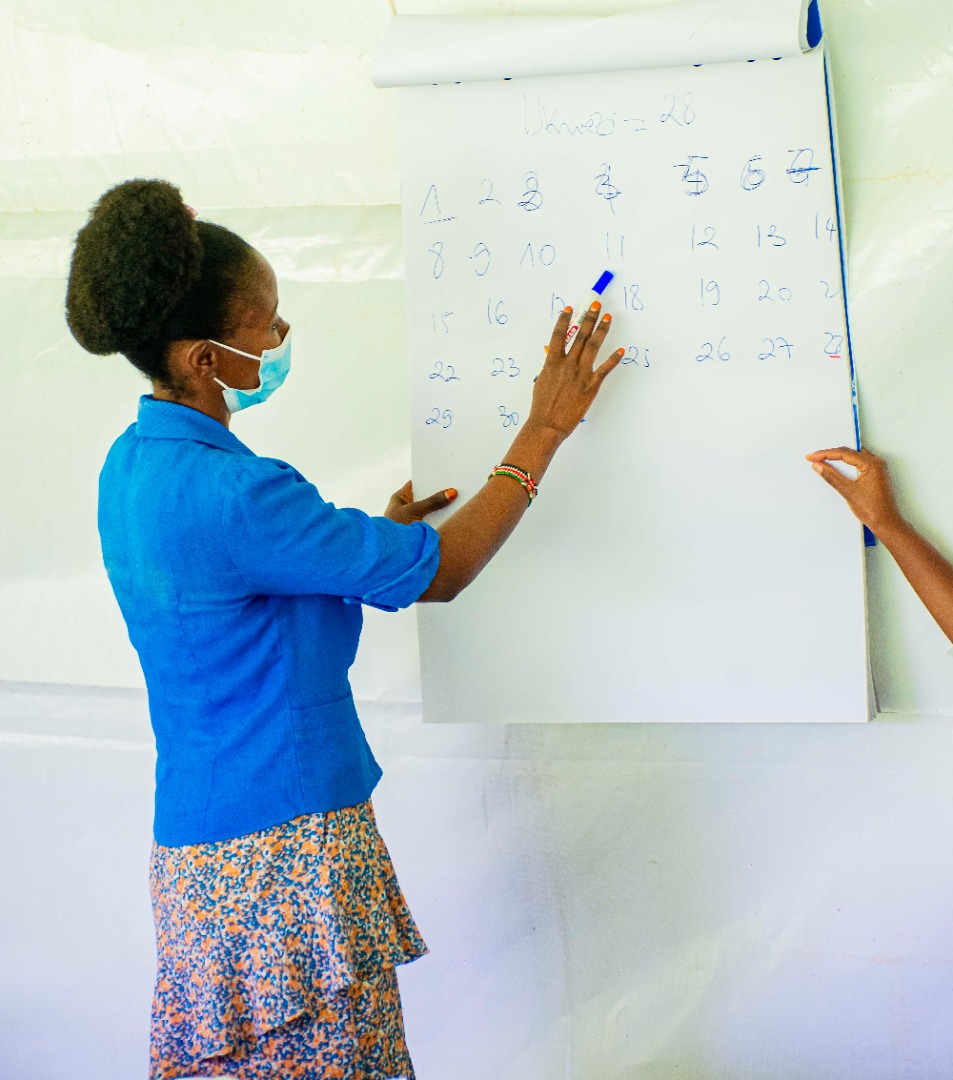 = 28
1 2 3 4 5 6 7
8 9 10 11 12 13 14
15 16 18 19 20
22 23 25 26 27
29 30